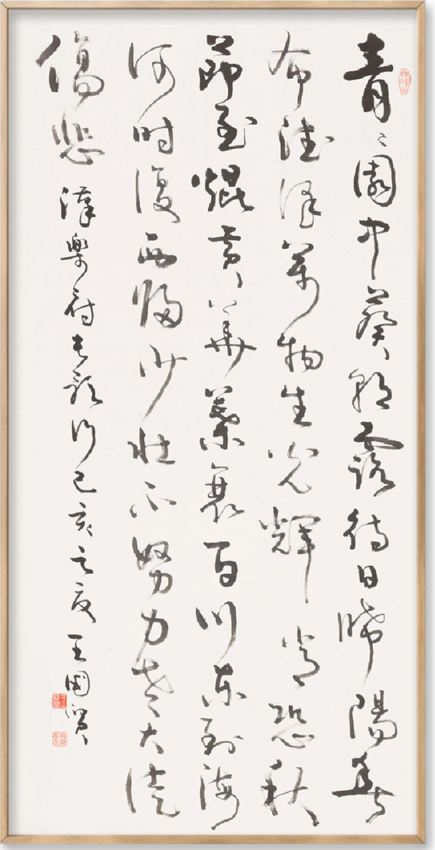 青々園中葵朝露待日晞陽春
布德澤萬物生光輝常恐秋
節至焜黃華葉衰百川東到海
何時復西歸少壯不努力老大徒
傷悲 漢樂府長歌行己亥之夏王國賢